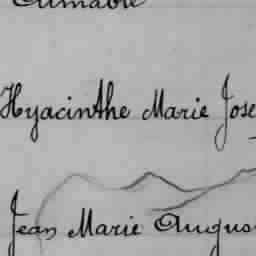 Hyacinthe Marie Jose
Jean Marie Augus